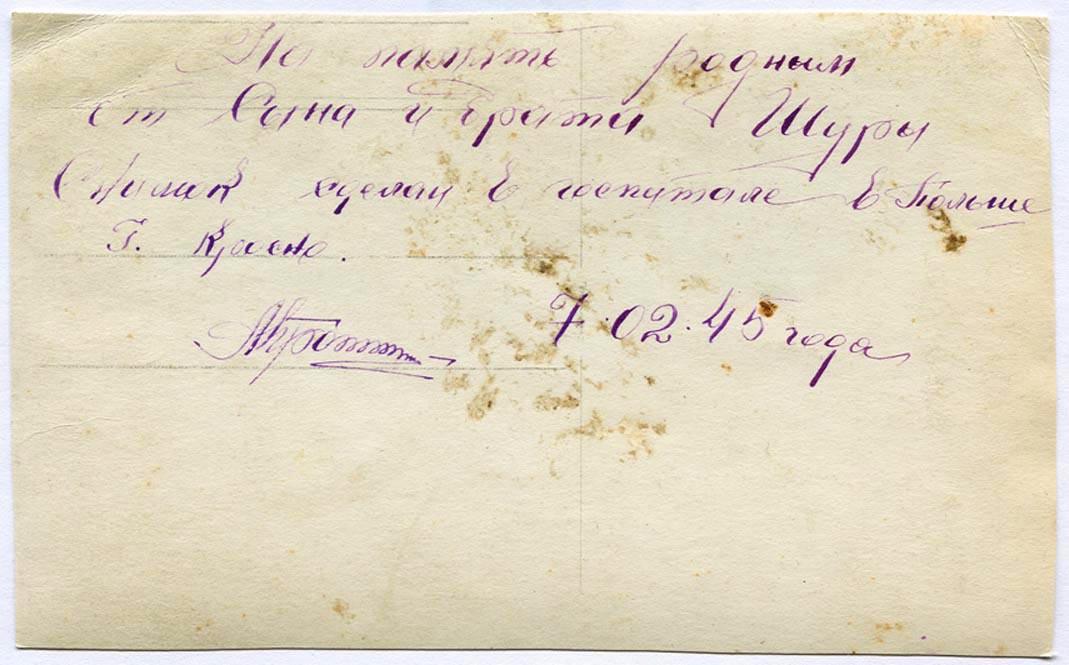 На память родным
от Сына и брата Шуры
Снимок сделан в госпитале в Польше
г. Кросно.
7.02.45 года